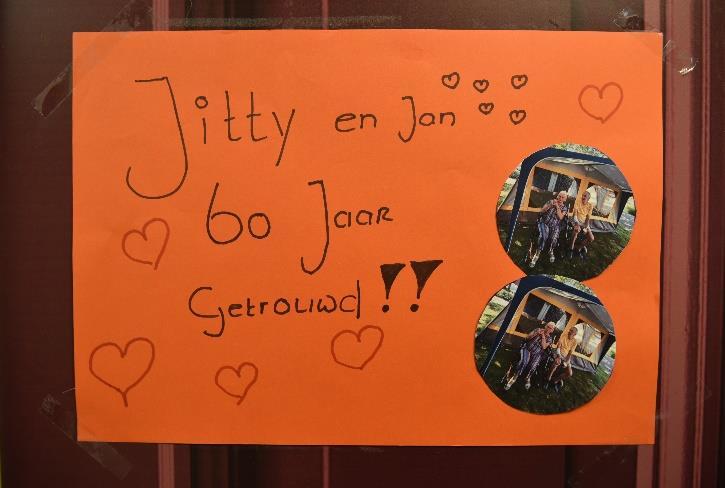 Jitty en Jan
60 Jaar
Getrouwd!!